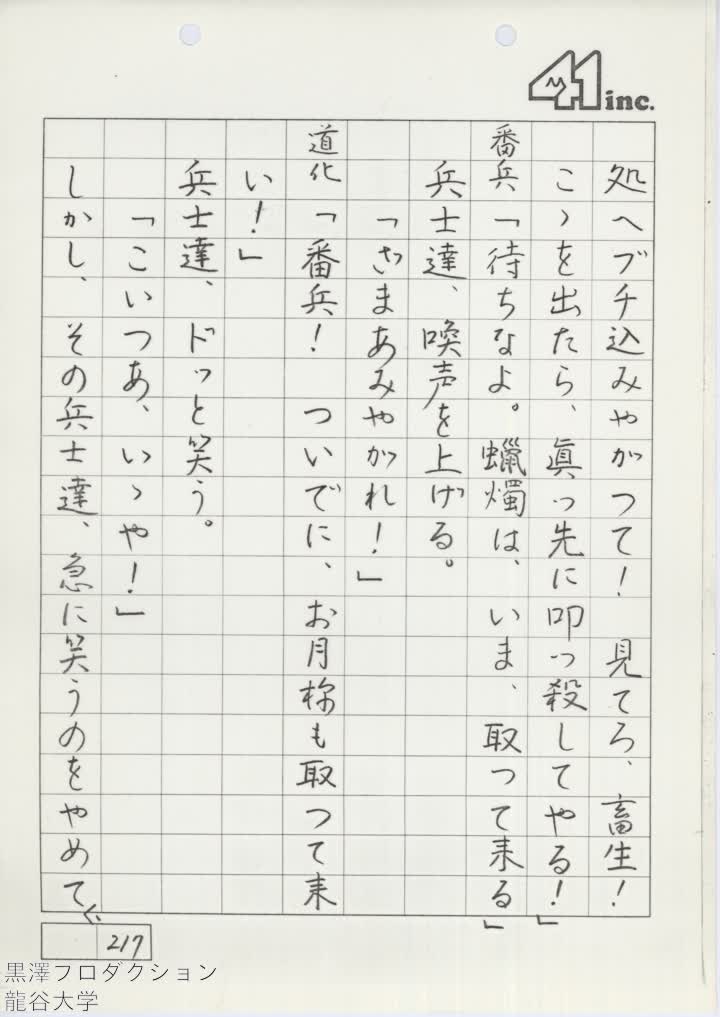 41 inc.
処へブチ込みやがつて！　見てろ、畜生！
こゝを出たら、眞っ先に叩っ殺してやる！」
番兵「待ちなよ。蠟燭は、いま、取つて来る」
兵士達、喚声を上げる。
「ざまあみやがれ！」
道化「番兵！　ついでに、お月様も取つて来
い！」
兵士達、ドッと笑う。
「こいつあ、いゝや！」
しかし、その兵士達、急に笑うのをやめて、
217
黒澤プロダクション
龍谷大学